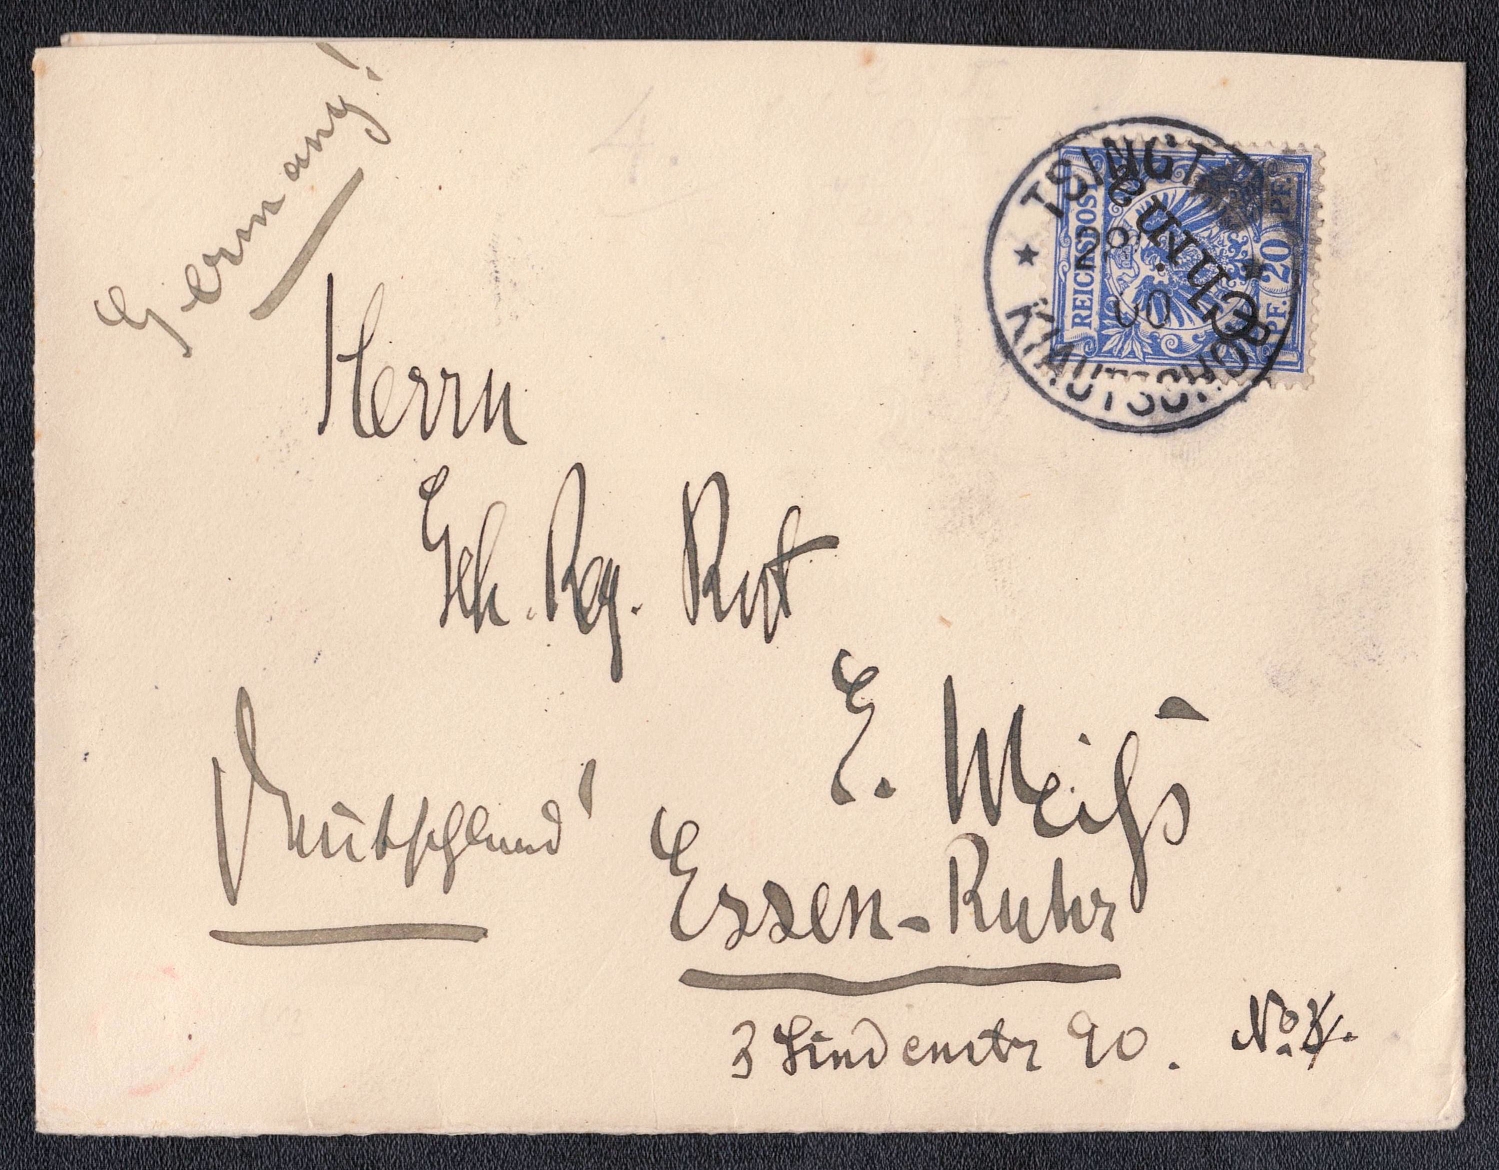 Germany!
TSINGTAU
KIAUTSCHOU
REICHSPOST
20 PF.
China
Herrn
Geh. Reg. Rat
E. Weiß
Deutschland!
Essen-Ruhr
3 Lindenstr 90.